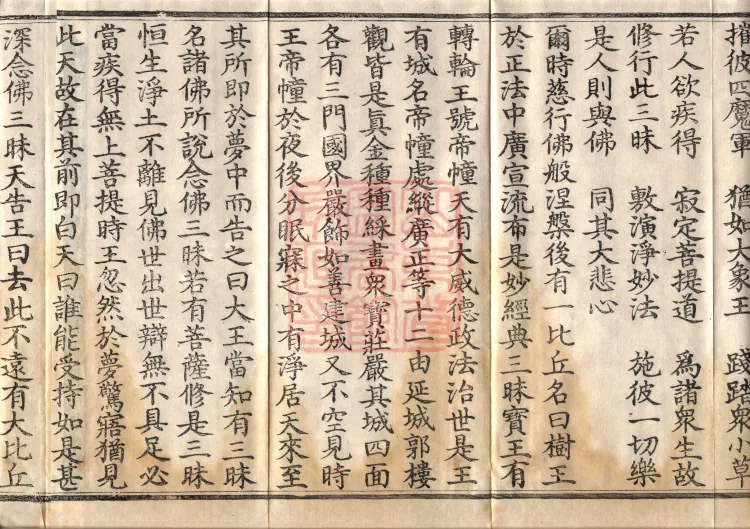 摧彼四魔軍　猶如大象王　踐蹈衆小草
若人欲疾得　寂定菩提道　爲諸衆生故
修行此三昧　敷演淨妙法　施彼一切樂
是人則與佛　同其大悲心
爾時慈行佛般涅槃後有一比丘名曰樹王
於正法中廣宣流布是妙經典三昧寶王有
轉輪王號帝幢天有大威德政法治世是王
有城名帝幢處縱廣正等十二由延城郭樓
觀皆是眞金種種綵畫衆寶莊嚴其城四面
各有三門國界嚴飾如善建城又不空見時
王帝幢於夜後分眠寐之中有淨居天來至
其所即於夢中而告之曰大王當知有三昧
名諸佛所說念佛三昧若有菩薩修是三昧
恒生淨土不離見佛世出世辯無不具足必
當疾得無上菩提時王忽然於夢驚寤猶見
此天故在其前即白天曰誰能受持如是甚
深念佛三昧天告王曰去此不遠有大比丘